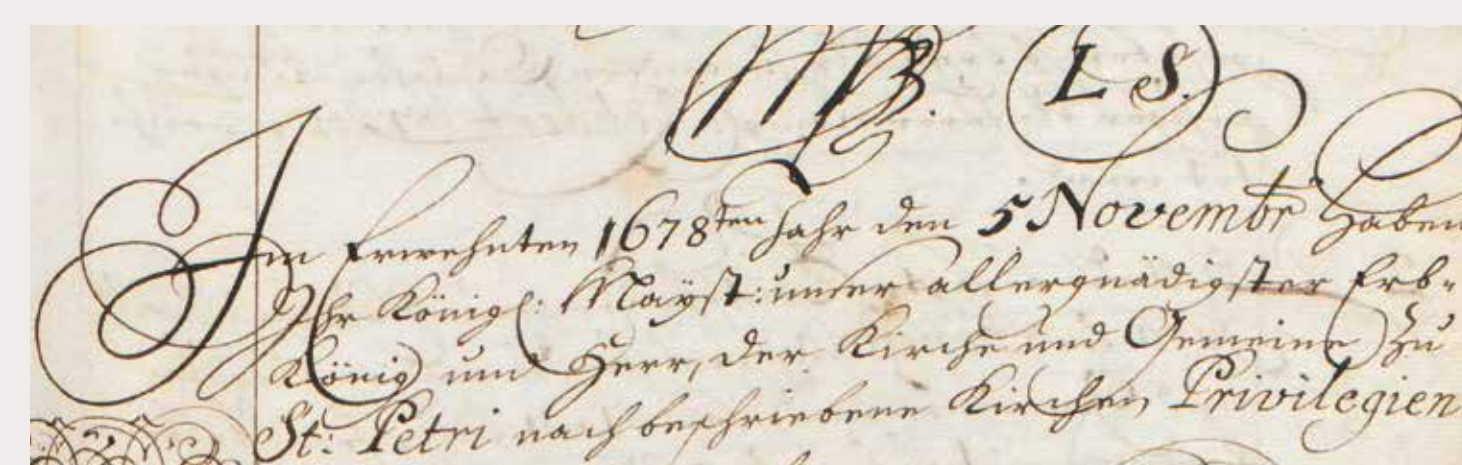 L. S.
Im Erwehnten 1678ten Jahr den 5 Novembr haben
Ihr Königl: Mayst: unser allergnädigster Erb-
König und Herr, der Kirche und Gemeine zu
St: Petri nachbeschriebene Kirchen Privilegien